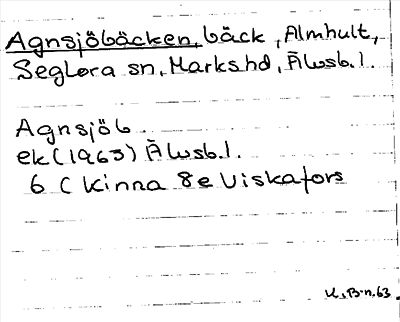 Agnsjöbäcken, bäck, Almhult,
Seglora sn, Marks hd, Älvsb. l.
Agnsjöb.
ek (1963) Älvsb. l.
6 C Kinna 8e Viskafors